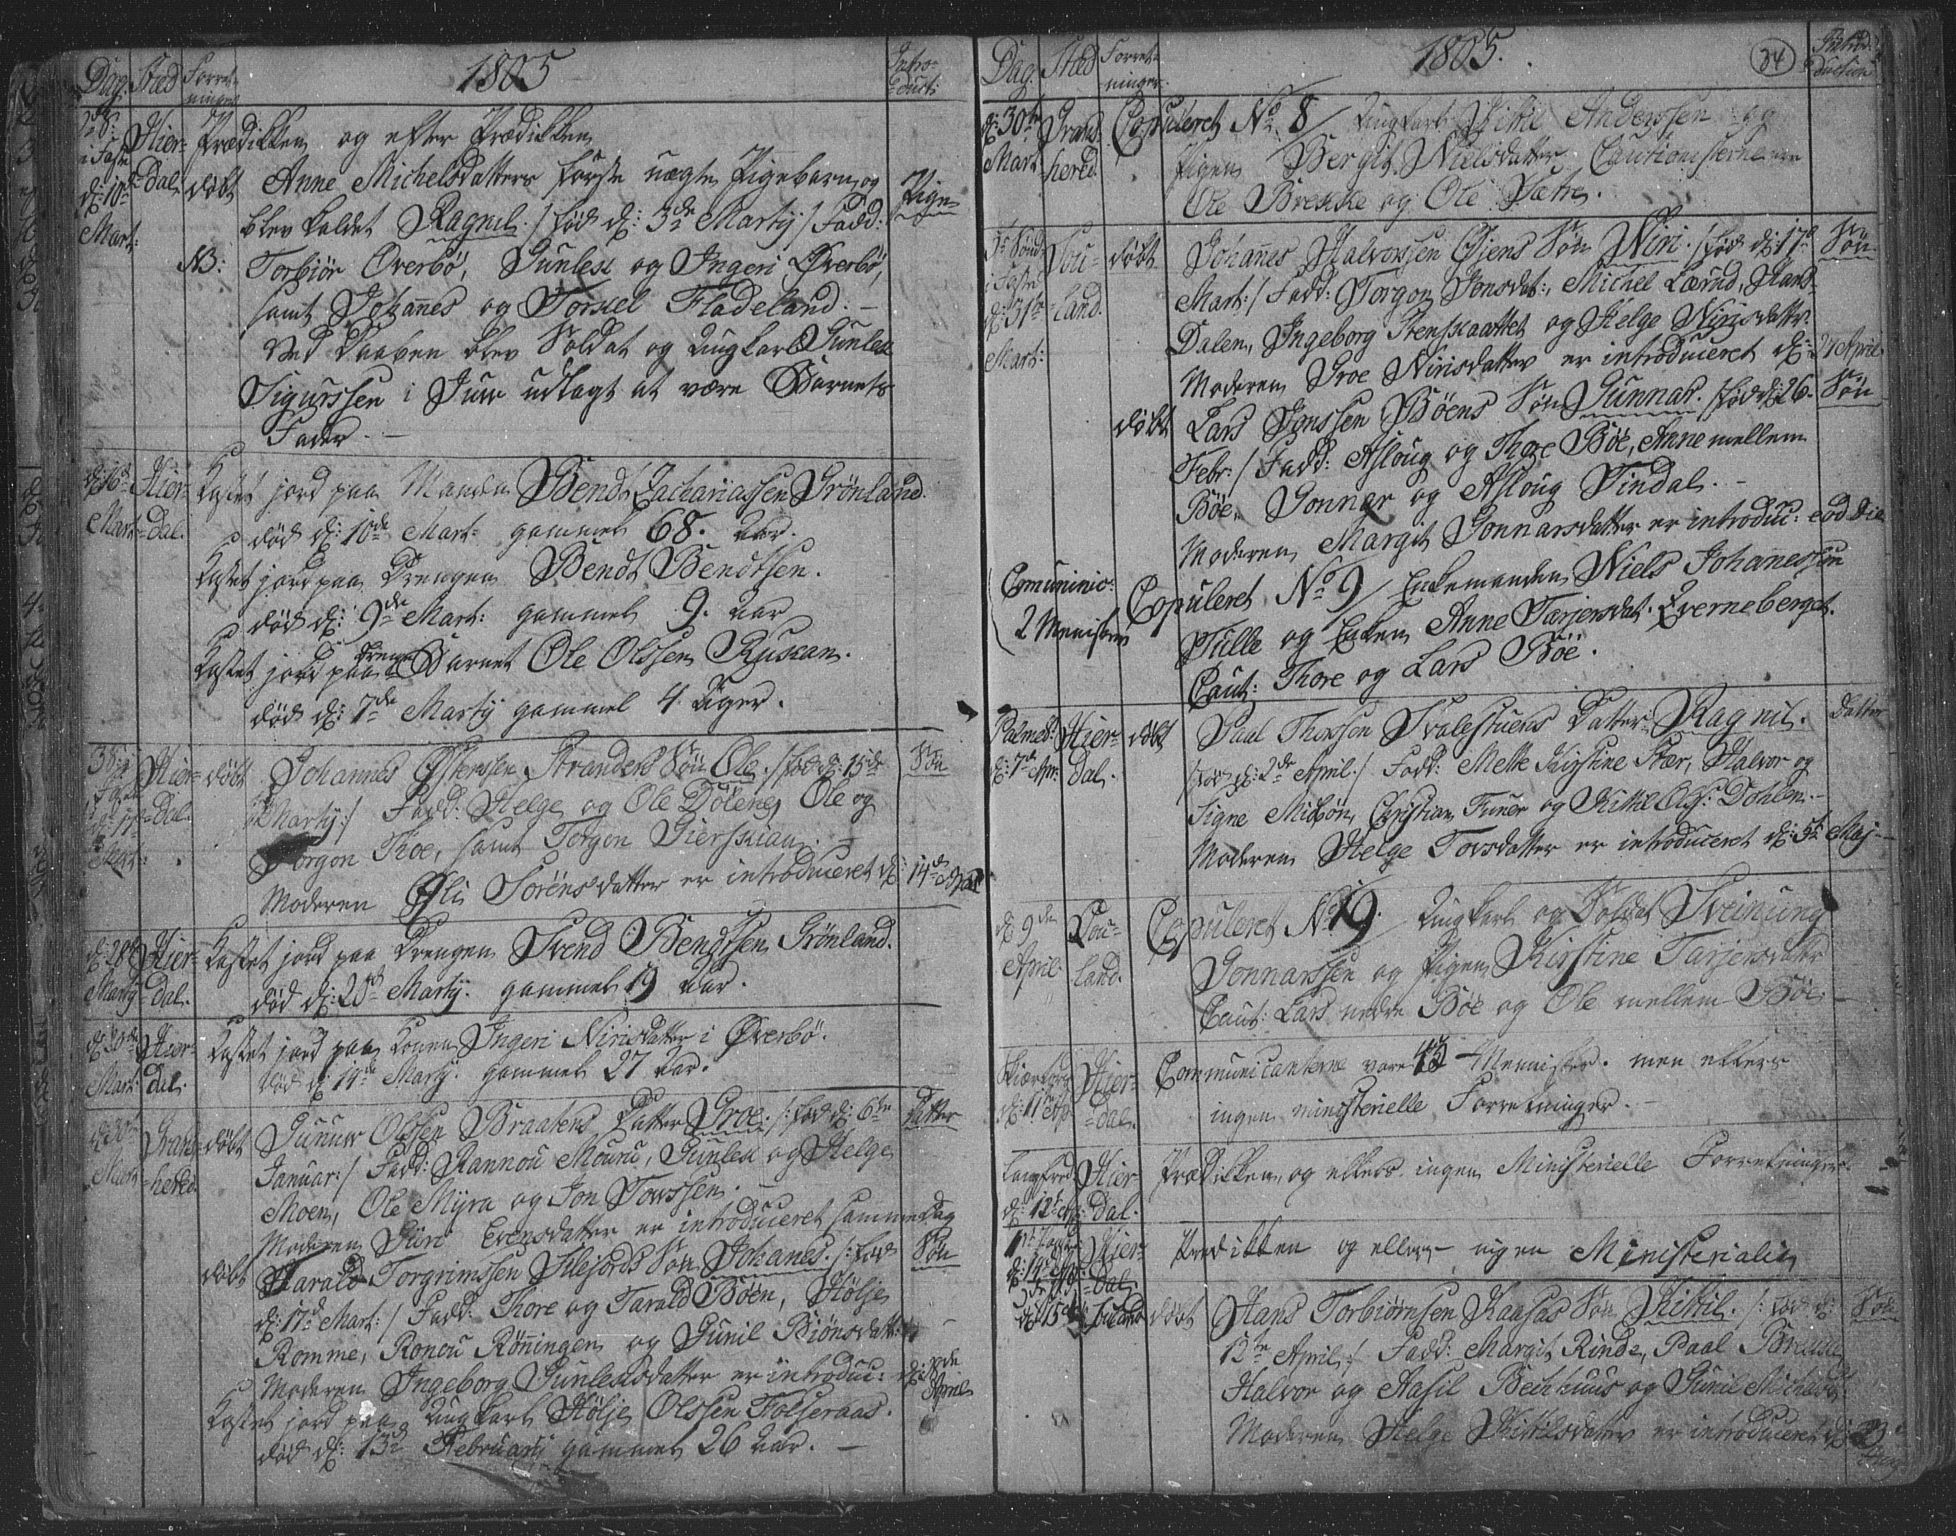 Dag. Sted Forret-
ninger
1805
Intro-
duct:
i Faste
d: 10de
Mart:
Hier-
dal
Prædikken og efter Prædikken
døbt Anne Michelsdatters første uægte Pigebarn og
blev kaldet Ragnil. /: fød d: 3de Martij /: Fadd:
Pige
NB: Torbiør Overbö, Gunlek og Ingeri Överbö,
samt Johannes og Torkel Fladeland. –
Ved Daaben blev Soldat og Ungkarl Gunlek
Sigurssen i Juv udlagt at være Barnets
Fader. –
d: 16de
Mart:
Hier-
dal.
Kastet jord paa Manden Bendt Zachariassen Grönland.
død d: 10de Mart: gammel 68. Aar.
Kastet jord paa Drengen Bendt Bendtsen.
død d: 9de Mart: gammel 9. Aar
Kastet jord paa Drenge Barnet Ole Olssen Rjukan.
død d: 7de Martij gammel 4 Uger.
3 S: i
Faste
d: 17de
Mart:
Hier-
dal.
døbt Johannes Østenssen Strandens Søn Ole. /: fød d: 15de
Søn
Martij /: Fadd: Helge og Ole Dölene, Ole og
Torgon Thoe, samt Torgon Gierskaan. –
Moderen Øsli Sörensdatter er introduceret d: 14de April
d: 28de
Martij
Hier-
dal.
Kastet jord paa Drengen Svend Bendtsen Grönland.
død d: 20de Martij. gammel 19 Aar.
d: 30de
Mart:
Hier-
dal.
Kastet jord paa Konen Ingeri Nirisdatter i Överbö.
død d: 19de Martij. gammel 27 Aar.
d: 30te
Mart:
Grans-
hered.
døbt Gunuv Olssen Braatens Datter Groe. /: fød d: 6te
Datter
Januar: /: Fadd: Rannou Mouru, Gunlek og Helge
Moen, Ole Myra og Jon Torssen.
Moderen Guri Evensdatter er introduceret samme Dag
døbt Harald Torgrimssen Ilefords Søn Johanes. /: fød
Søn
d: 17de Mart: /: Fadd: Thore og Tarald Böen, Hölje
Romme, Ronou Röningen og Gunil Biönsdatter
Moderen Ingeborg Gunleksdatter er introduc: d: 8de
April
Kastet jord paa Ungkarl Hölje Olssen Folseraas.
død d: 13de Februarij gammel 26 Aar. –
Dag. Sted Forret-
ninger.
1805.
34
Intro-
duction
d: 30te
Mart:
Grans-
hered.
Copuleret No. 8 / Ungkarl Kittil Anderssen og
Pigen Bergit Nielsdatter Cautionisterne ere
Ole Brekke og Ole Sætre.
Sönd:
i Faste
d: 31te
Mart:
Sou-
land.
døbt Johannes Halvorssen Öjens Søn Niri. /: fød d: 17de
Søn
Mart: /: Fadd: Torgon Jonsdat:, Michel Lærud, Hans
Dalen, Ingeborg Stenskaattet og Helge Nirisdatter
Moderen Groe Nirisdatter er introduceret d: 21 April
døbt Lars Jonssen Böens Søn Gunnar. /: fød d: 26.
Søn
Febr: /: Fadd: Asloug og Thore Böe, Anne mellem
Böe, Gonnar og Asloug Tindal. –
Moderen Margit Gonnarsdatter er introduc: eod die
Comunic:
2 Menisker
Copuleret No. 9 / Enkemanden Niels Johanessen
Tulle og Enken Anne Tarjersdat: Qverneberget.
Caut: Thore og Lars Böe.
Palmes:
d: 7de Apr.
Hier-
dal.
døbt Paal Thorsen Svalestuens Datter Ragnil.
Datter
/: fød d: 2de April. /: Fadd: Mette Kirstine Stær, Halvor og
Signe Midbön, Christian Funer og Kittil Ols: Dohlen. –
Moderen Helge Torsdatter er introduceret d: 5te Maj –
d: 9de
April
Sou-
land.
Copuleret No. 9. / Ungkarl og Soldat Sveinung
Gonnarssen og Pigen Kirstine Tarjersdatter
Caut: Lars nedre Böe og Ole mellem Böe –
Skiærtorsd
d: 11te Ap
Hier-
dal.
Communicanterne vare 43 Mennisker. men ellers
ingen ministerielle Forretninger. –
Langfred:
d: 12te Ap:
Hier-
dal.
Prædikken og ellers ingen Ministerielle Forretninger.
d: 14de Ap:
Hier-
dal
Prædikken og ellers ingen Ministerialia
d: 15de
døbt Hans Torbiörnsen Kaasas Søn Kittil. /: fød d:
Søn
12te April /: Fadd: Margit Rinde, Paal Brekke
Halvor og Aasil Bekhuus og Gunil Michelsd:
Moderen Helge Kittilsdatter er introduceret d: